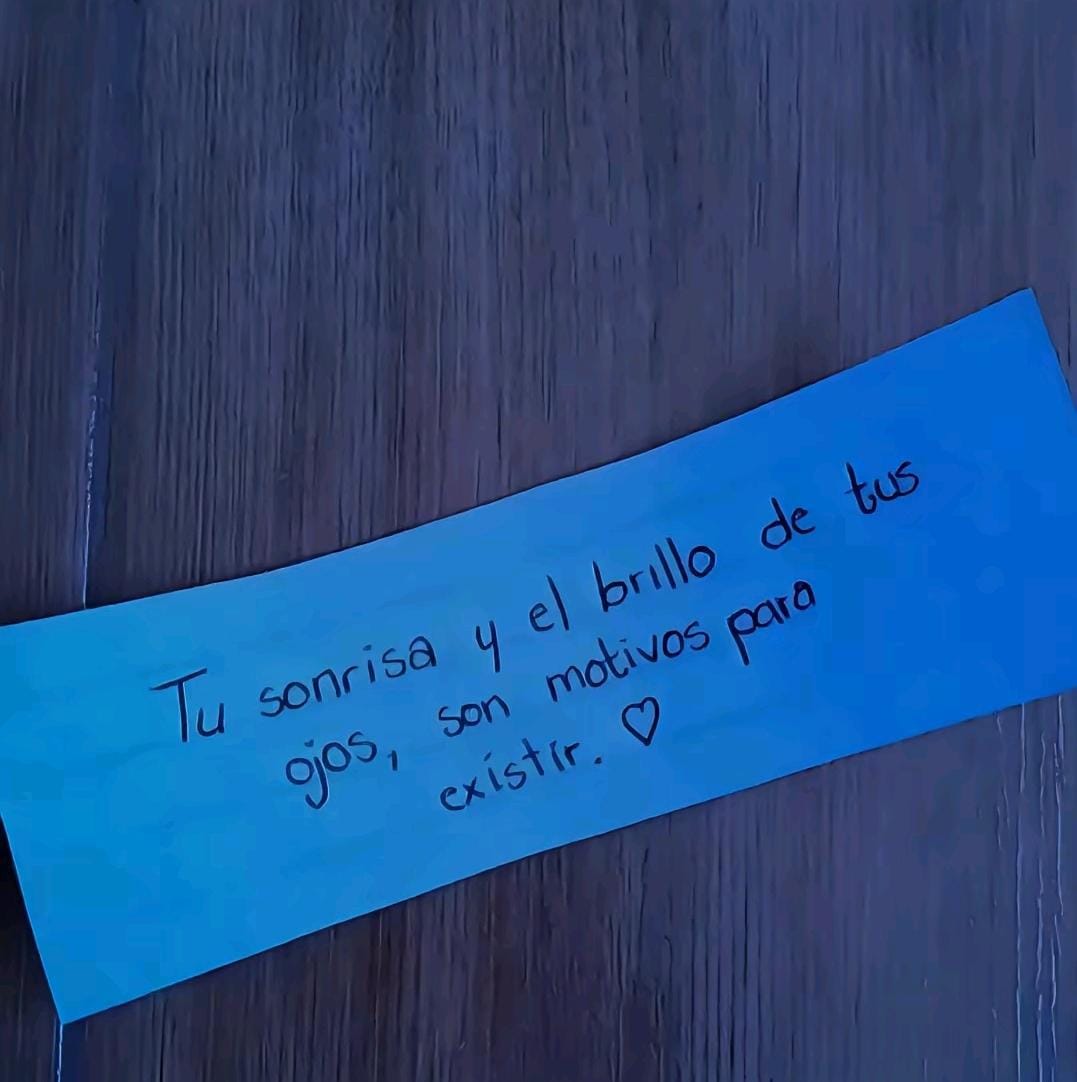 Tu sonrisa y el brillo de tus
ojos, son motivos para
existir. ♡